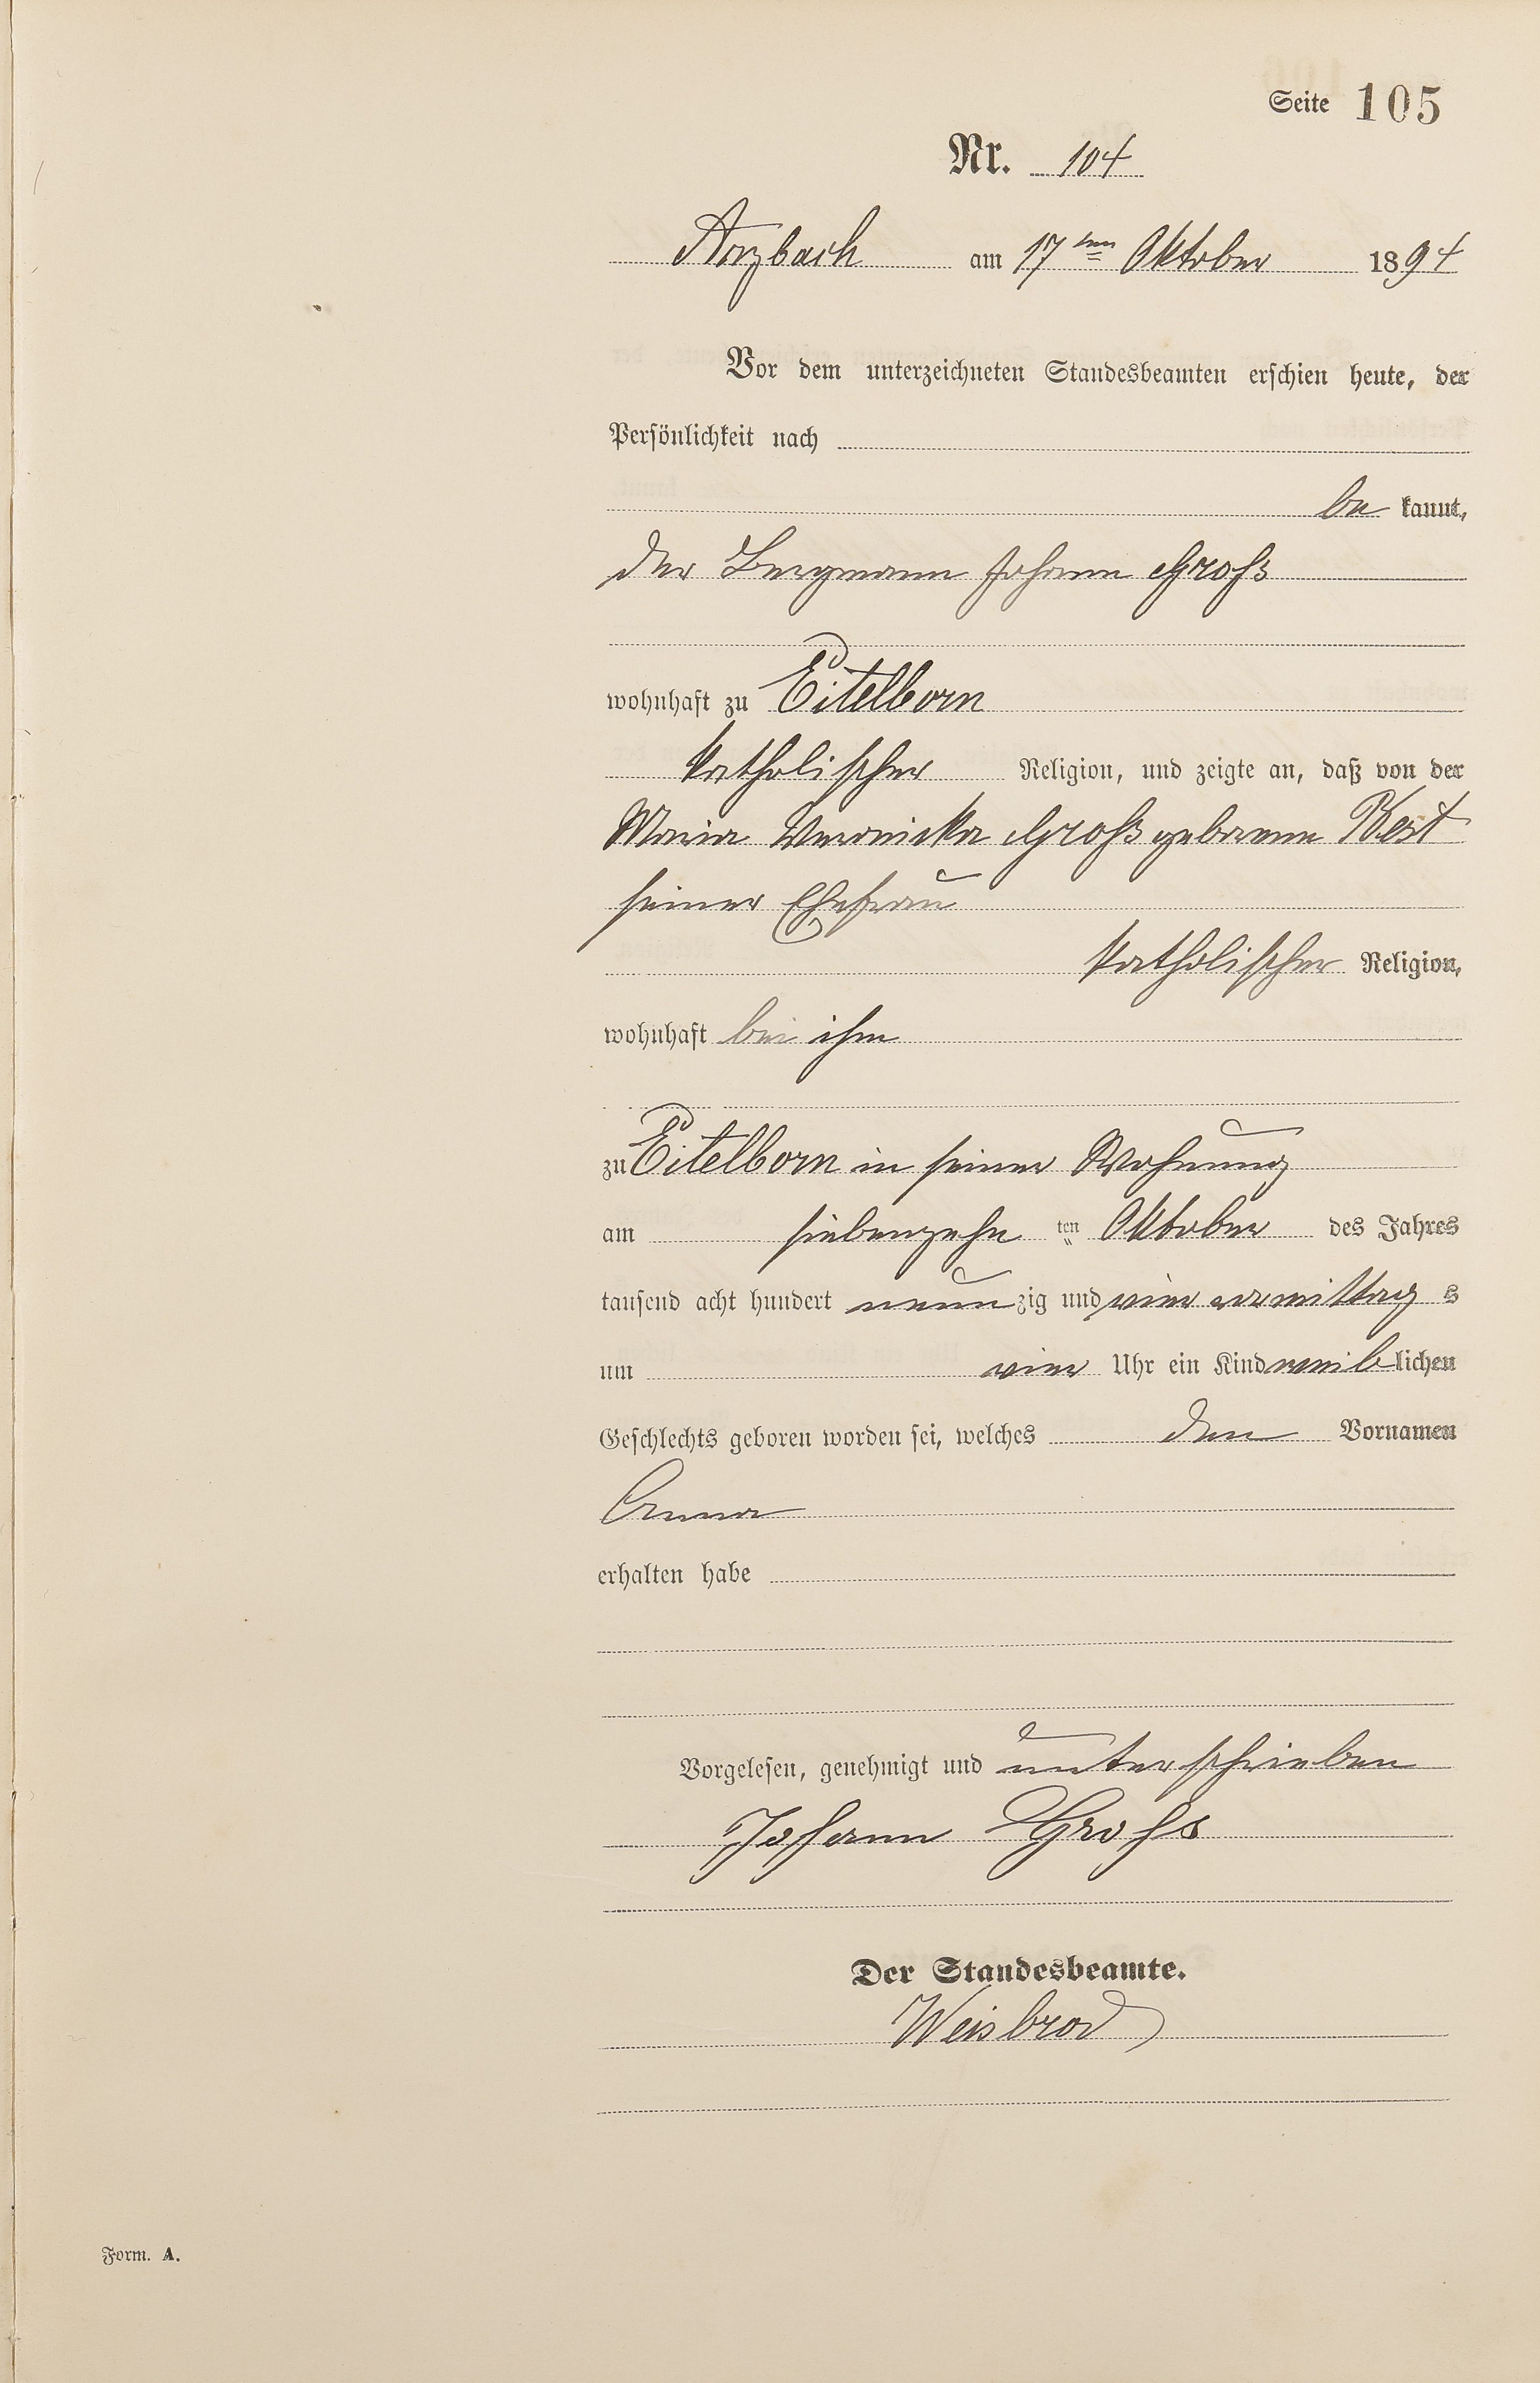 Seite 105
Nr. 104
Arzbach am 17ten Oktober 1894
Vor dem unterzeichneten Standesbeamten erschien heute, der
Persönlichkeit nach
be kannt,
der Bergmann Johann Groß
wohnhaft zu Eitelborn
katholischer Religion, und zeigte an, daß von der
Maria Veronicka Groß geborene
seiner Ehefrau
katholischer Religion,
wohnhaft bei ihm
zu Eitelborn in seiner Wohnung
am siebenzehn ten Oktober des Jahres
tausend acht hundert neunzig und vier vormittag s
um vier Uhr ein Kind weiblichen
Geschlechts geboren worden sei, welches den Vornamen
Anna
erhalten habe
Vorgelesen, genehmigt und unterschrieben
Johann Groß
Der Standesbeamte.
Weisbrod
Form. A.